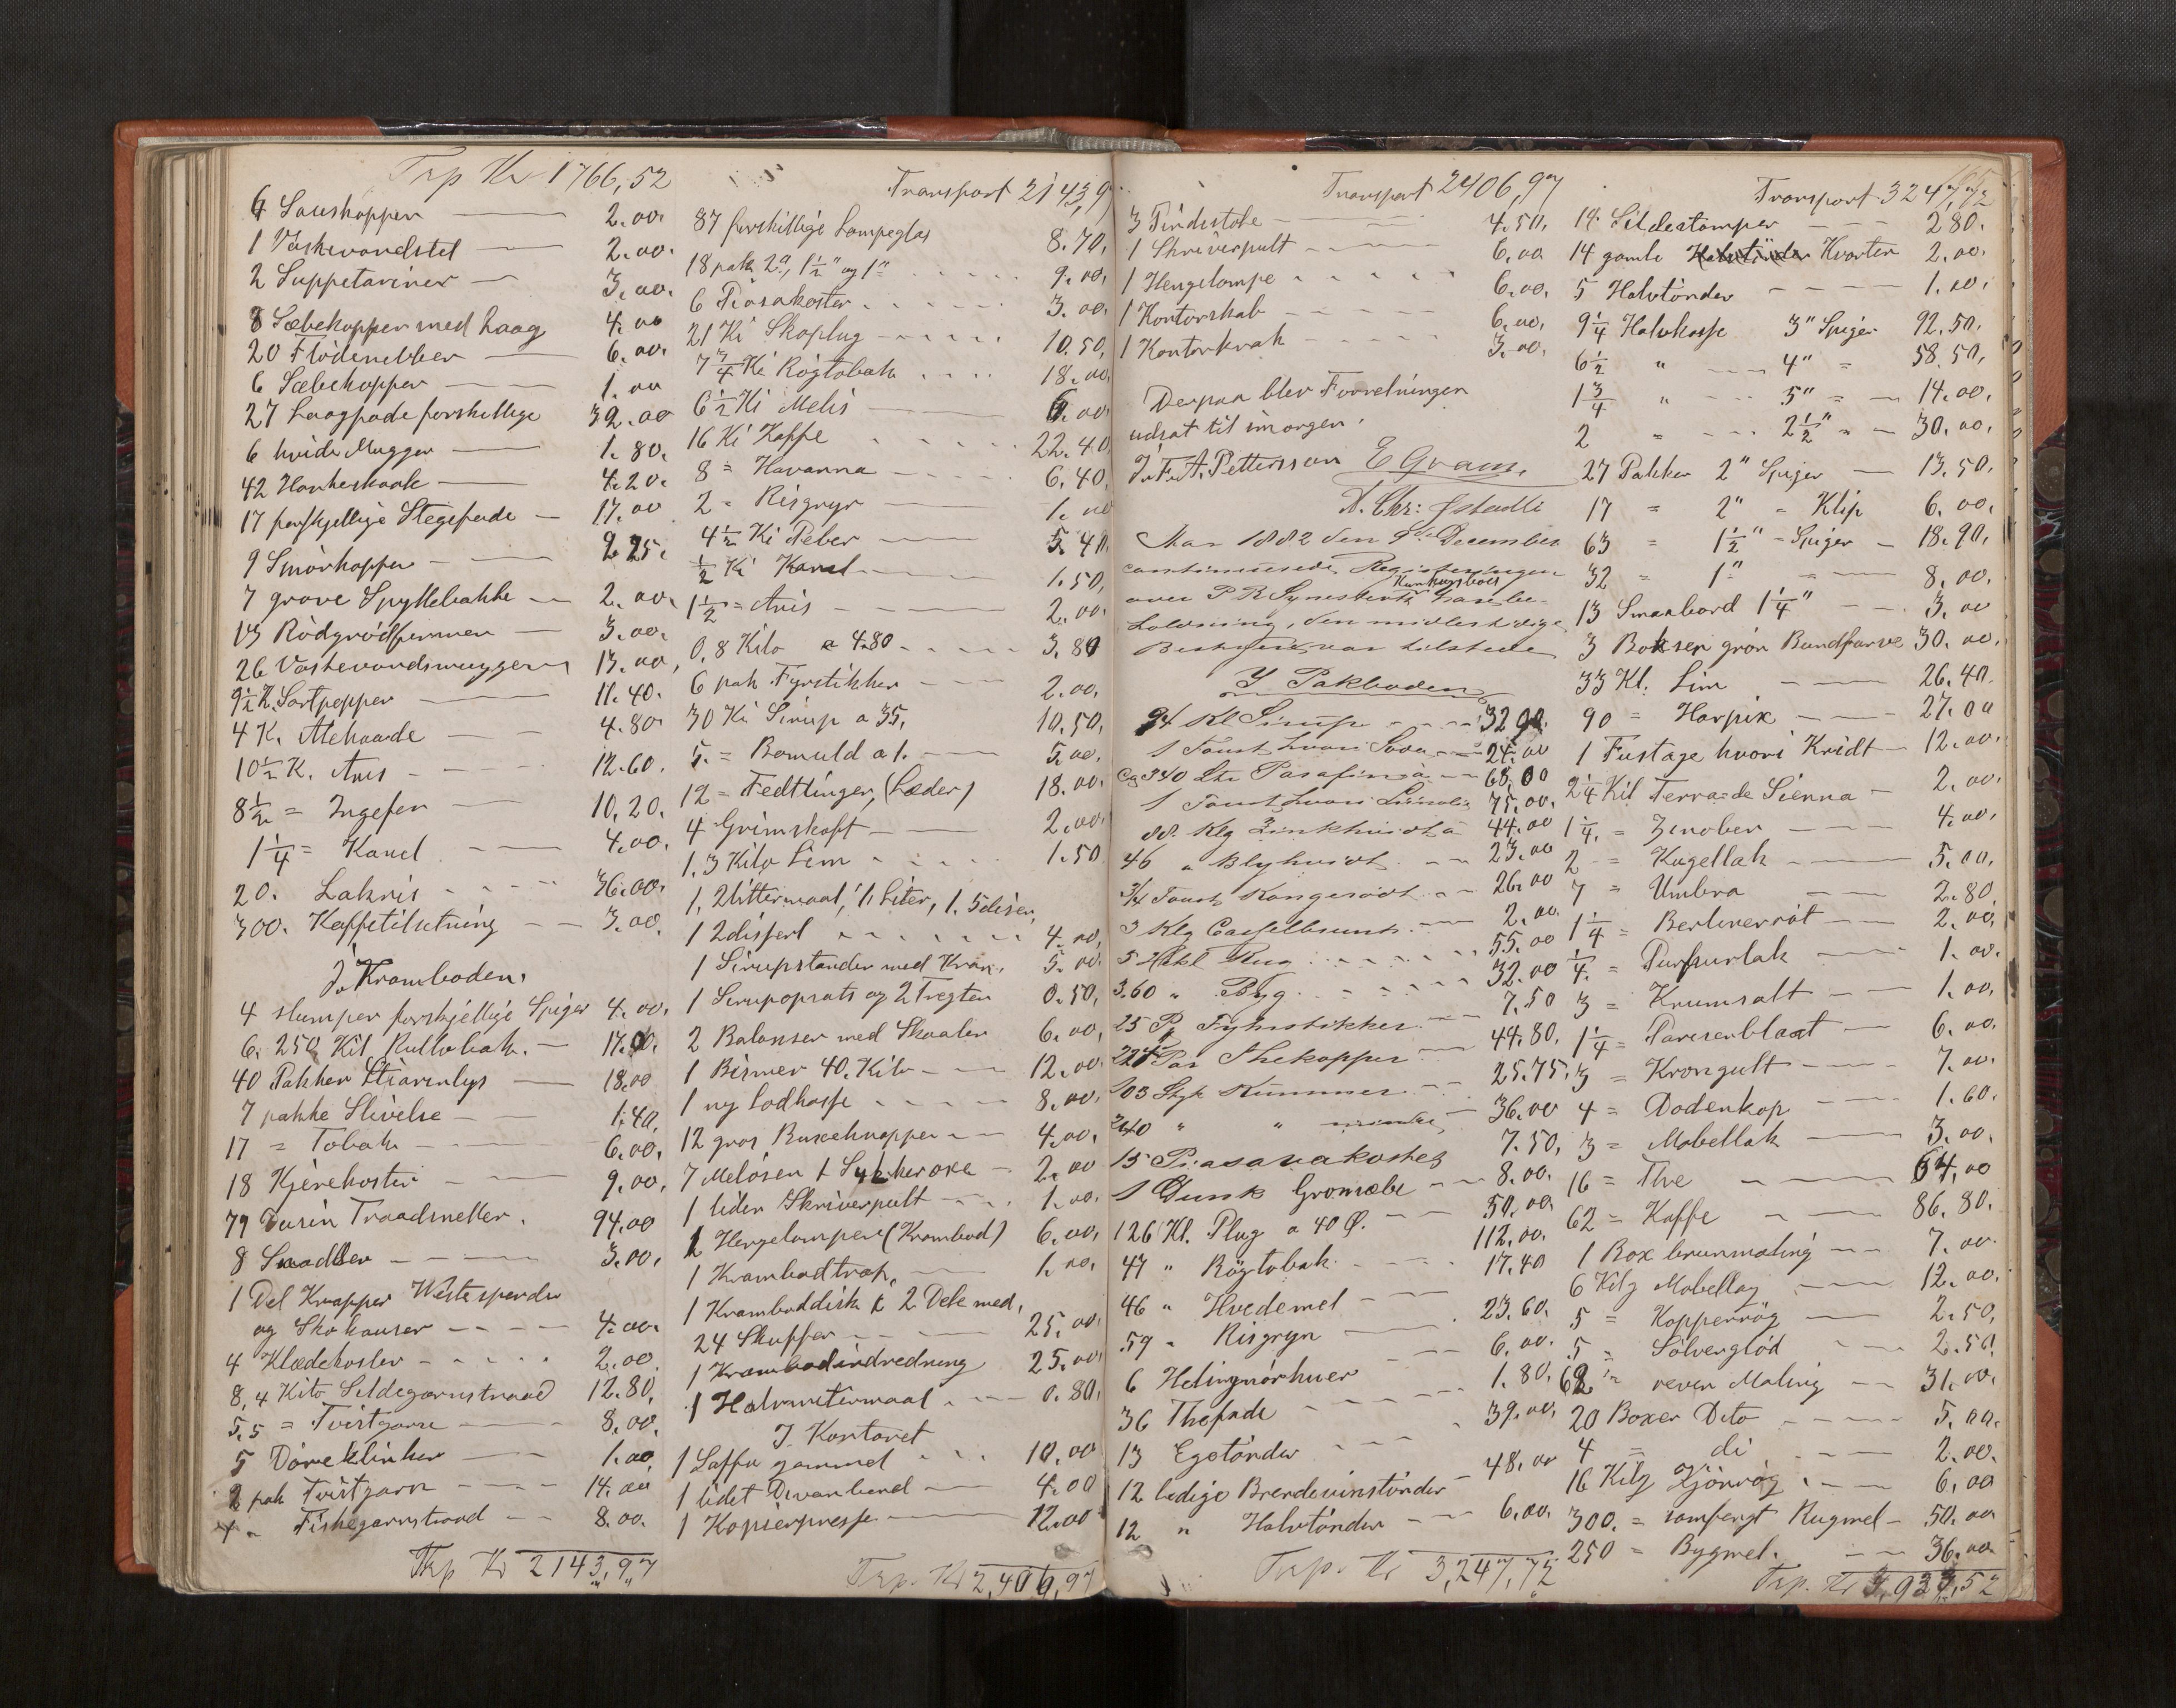 Trp Kr 1766,52
6 Saushopper — 2.00.
1 Vaskevandstel — 2.00.
2 Suppetariner — 3.00.
8 Sæbekopper med Laag 4.00
20 Flödenebber — 6.00.
6 Sæbekopper — 1.00
27 Laagfade forskellige 32.00
6 hvide Mugger — 1.80.
42 — 4.20.
17 forskjellige Stegefade — 17.00
9 Smörkopper — 2.25.
7 grove Spyttebakke — 2.00.
13 Rödgrödformer — 3.00.
26 Vaskevandsmugger 13.00,
9½ K. Sortpepper — 11.40.
4 K. Alehaade — 4.80
10½ K. Anis — 12.60.
8½ = Ingefer — 10.20.
1¼ = Kanel — 4.00.
20. Lakris — 36.00.
300. Kaffetilsetning — 3.00.
J Kramboden.
4 slumper forskjellige Spiger 4.00.
6. 250 Kil Rultobak. — 17.00.
40 Pakker Stearinlys — 18.00
7 pakke Stivelse — 1.40,
17 = Tobak — 6.00,
18 Kjerekoster — 9.00,
79 Dusin Traadsneller. 94.00
8 — 3.00,
1 Del Knapper Westespender
og — 4.00.
4 Klædekoster — 2.00.
8,4 Kilo Sildegarnstraad 12.80,
5,5 = Tvistgarn — 8.00.
5 Döreklinker — 1.00,
2 pak Tvistgarn — 14.00
Fiskegarnstraad — 8.00.
Trp Kr 2143,97
Transport 2143,97
87 forskillige Lampeglas 8.70,
18 pak 2", 1½" og 1" 9.00,
6 Piasakoster 3.00.
21 Ki Skoplug — 10.50,
7¾ Ki Rögtobak 18.00,
6½ Ki Melis — 6.00,
16 Ki Kaffe 22.40
8 = Havanna — 6.40,
2 = Risgryn — 1.00
4½ Ki Peber — 5.40.
½ Ki Kanel — 1.50,
1½ = Anis — 2.00.
0,8 Kilo a 4.80 3.80
6 pak Fyrstikker — 2.00.
30 Ki Sirup a 35, 10.50,
5. = Bomuld a 1. — 5.00.
12 = Fedttinger, (Læder) 18.00.
4 Grimskaft — 2.00.
1.3 Kilo Lim 1.50
1, 2 littermaal, 1 Liter, 1. 5 deser,
1 2 — 4.00,
1 Sirupstander med Kran. 5.00.
1 og 2 Tregter 0.50,
2 Balanser med Skaaler 6.00,
1 Bismer 40. Kilo — 12.00.
1 ny Lodkasse 8.00.
12 gros Buxeknapper — 4.00,
7 — 2.00
1 liden Skriverpult 1.00.
2 Hengelamper (Krambod) 6.00,
1 Krambodtrap, — 1.00.
1 Kramboddisk t 2 Dele med,
24 Skuffer — 25.00.
1 Krambodindredning 25.00
1 Halvmetermaal 0.80.
J. Kontoret
1 Saffa gammel 10.00
1 lidet — 4.00
1 Kopierpresse — 12.00
Trp. Kr 2,406,97
Transport 2406,97
3 — 4.50,
1 Skriverpult — 6.00
1 Hengelampe 6.00,
1 Kontorskab — 6.00,
1 Kontorkrak 3.00.
Derpaa blev Forretningen
udsat til imorgen.
J. F. A. Pettersson E Gram.
N. Chr:
Aar 1882 den 9de December
continueredes Registeringen
over P R Konkursboes Varebe-
holdning, den midlertidige
Bestyrer var tilstede
I Pakboden
94 Kl Sirup — 32.90.
1 Faust hvori Soda — 24.00
Ca 340 Ltr Parafin à — 68,00
1 Faust hvori Linolie 75.00.
88. Klg Zinkhvidt à 44.00
46 " Blyhvidt. — 23.00
¾ Faust Kongerödt — 26.00
3 Klg Casselbrunt — 2.00.
5 Hekl Rug 55.00
3.60 " Byg 32.00
25 P. Fyrstikker — 7.50
224 Par Thekopper — 44.80,
103 Styk Kummer — 25.75.
240 " " mindre — 36.00
15 Piasavakoster 7.50,
1 Dunk Gronsæbe — 8.00.
126 Kl. Plug a 40 Ø. — 50.00.
47 " Rögtobak 112.00.
46 " Hvedemel — 17.40
59 " Risgryn — 23.60.
6 — 6.00.
36 Thefade 1.80,
13 Egetönder 39.00,
12 ledige Brendevinstönder 48.00
12 " Halvtönder — 6.00.
Trp. Kr 3,247,72
Transport 3247,72
14 Sildestamper — 2 80.
14 gamle Halvtönder Kvarter 2.00.
5 Halvtönder — 1.00.
9¼ Halvkasse 3" Spiger 92.50.
6½ " 4" = 58.50,
1¾ " 5" = 14.00,
2 = 2½" " — 30.00.
27 Pakker 2" Spiger — 13.50,
17 = 2" = Klip 6.00,
63 = 1½" = Spiger — 18.90,
32 = 1" — 8.00.
13 Smaabord 1¼" — 3.00
3 Bokser grön Bundfarve 30.00,
33 Kl. Lim — 26.40.
90 = Harpix — 27.00
1 Fustage hvori Kridt — 12.00.
2¼ Kil Terra de Sienna — 2.00.
1¼. = Zinober — 4.00,
2 = Kugellak — 5.00,
7 = Umbra — 2.80,
1¼ = Berlinerröt — 2.00,
¼. = Purpurlak — 1.00.
3 = Krumsalt — 1.00,
1¼ = Pariserblaat — 6.00.
3 = Krongult — 7.00.
4 = Dodenkop — 1.60.
3 = Mobellak — 3.00.
16 = The — 64,00
62 = Kaffe — 86.80.
1 Box brunmaling — 7.00
6 Kilg Mobellag — 12.00.
5 = Kopperrög — 2.50,
5 = Sölverglöd 2.50.
62 " reven Maling — 31.00.
20 Boxer Dito — 5.00.
4 = di — 2.00.
16 Kilg Kjönrög — 6.00
300. = samfengt Rugmel — 50.00
250 = Bygmel. — 36.00
Trp. Kr 3,923,52